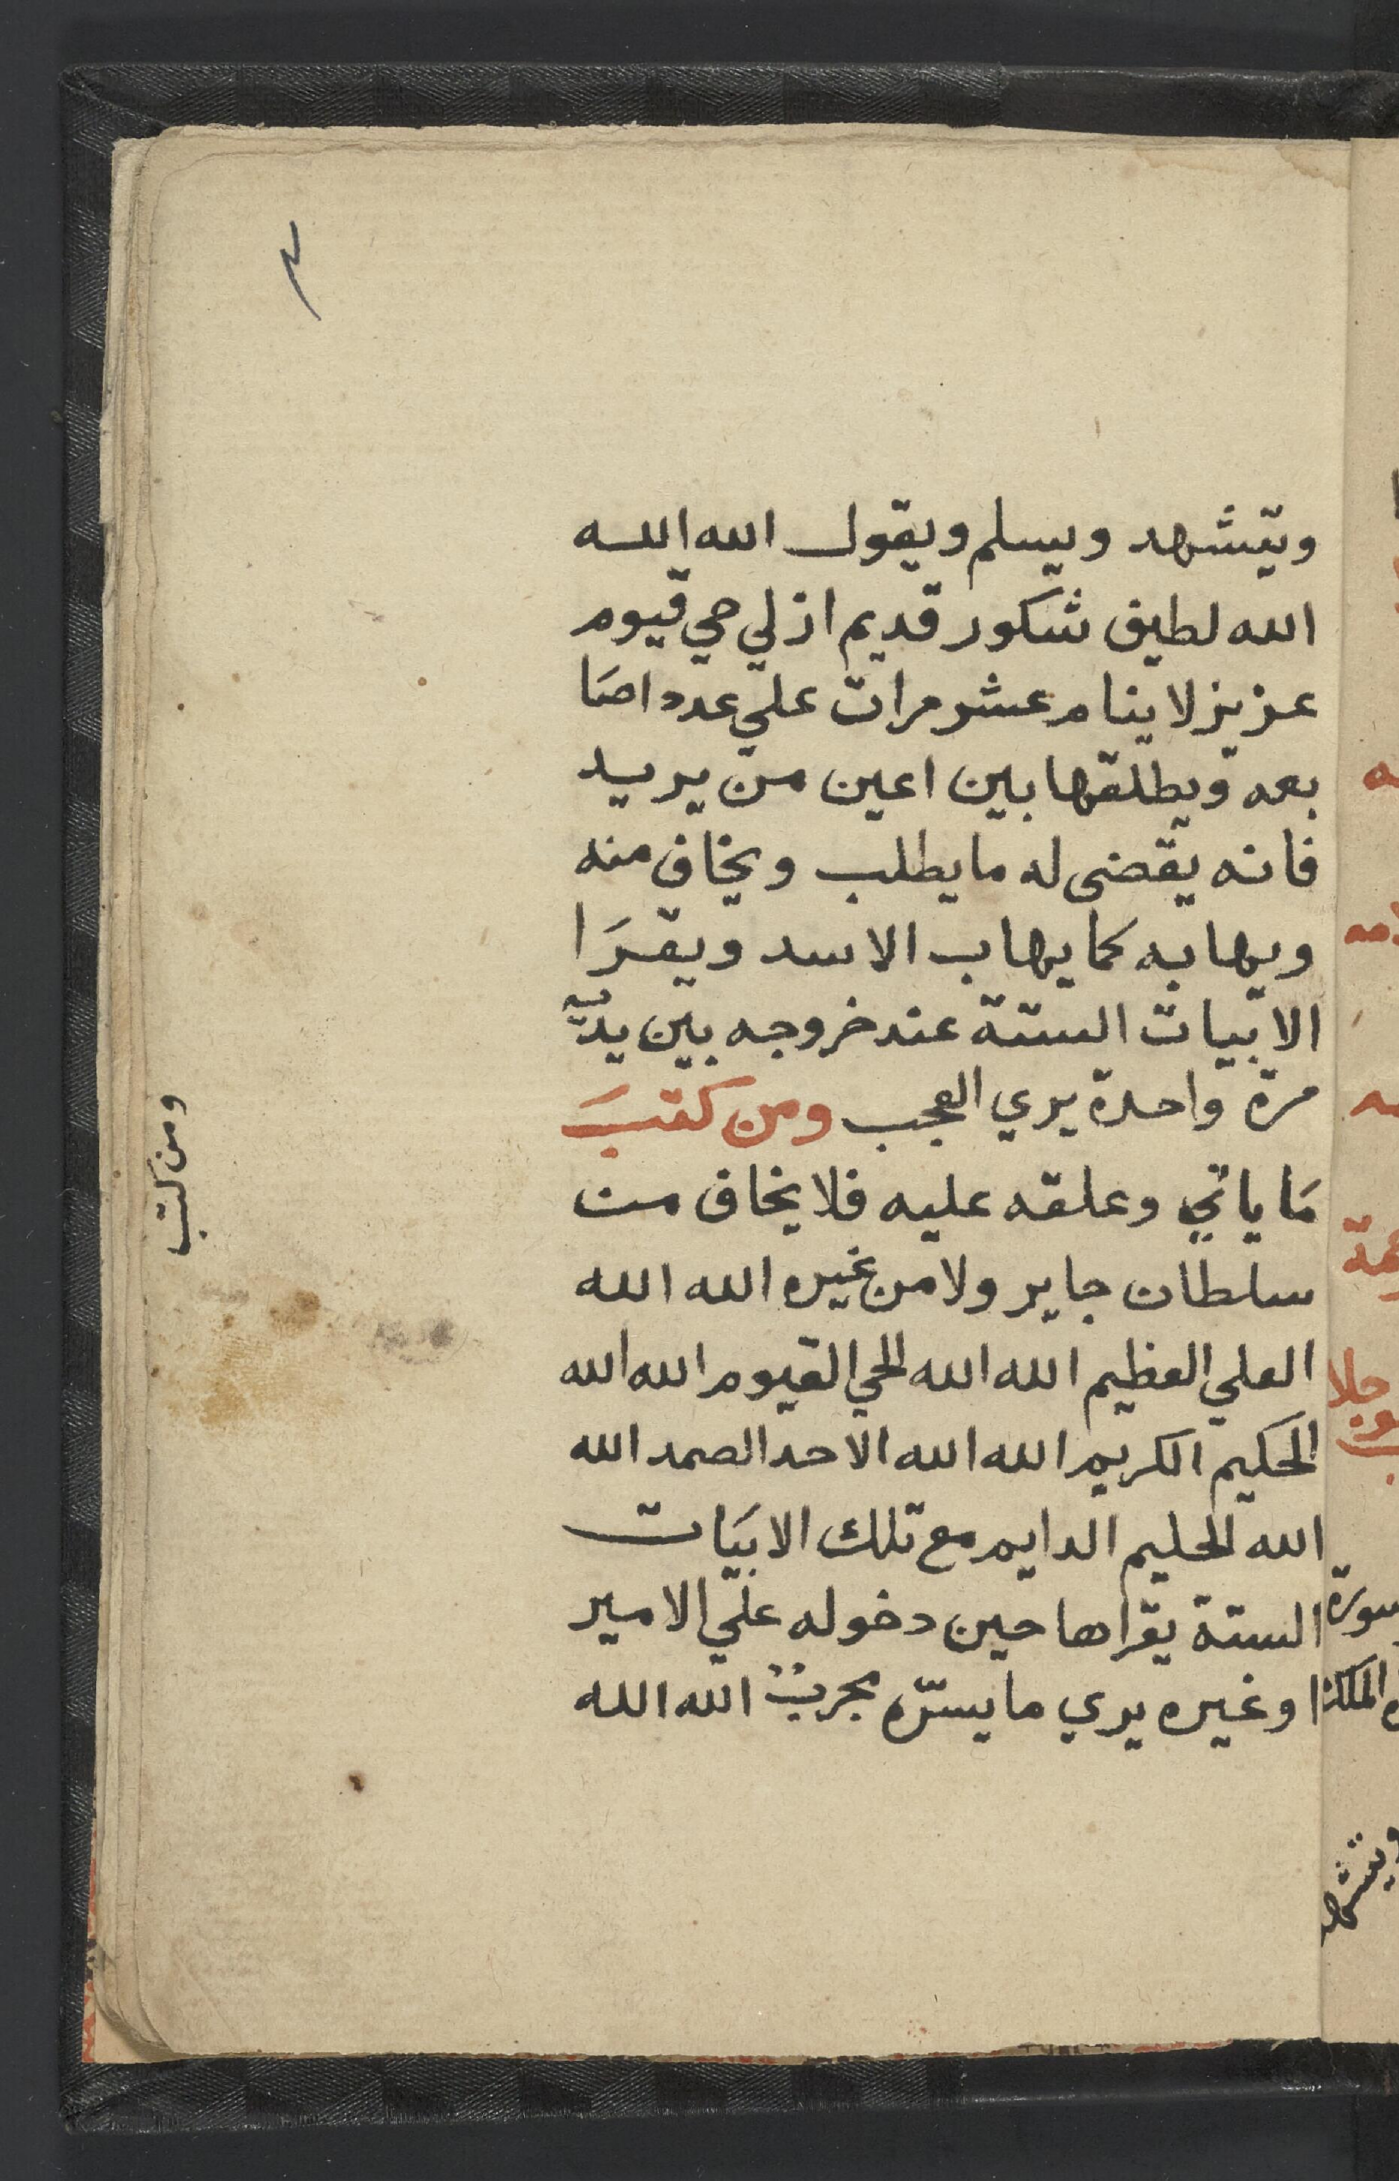 ٣
ويتشهد ويسلم ويقول الله الله
الله لطيف شكور قديم ازلي حي قيوم
عزيز لا ينام عشر مرات علي عدد اصا
بعه ويطلقها بين اعين من يريد
فانه يقضى له ما يطلب ويخاف منه
ويهابه كما يهاب الاسد ويقرَا
الابيات الستة عند خروجه بين يديّه
مرة واحدة يري العجب ومن كتبَ
مَا ياتي وعلقه عليه فلا يخاف من
سلطان جاير ولا من غيره الله الله
العلي العظيم الله الله الحي القيوم الله الله
الحَكيم الكريم الله الله الاحد الصمد الله
الله الحليم الدايم مع تلك الابيَات
الستة يقراها حين دخوله علي الامير
او غيره يري ما يسرّه مجربٌ الله الله
ومن كتب
سورة
الملك
ويتشهد